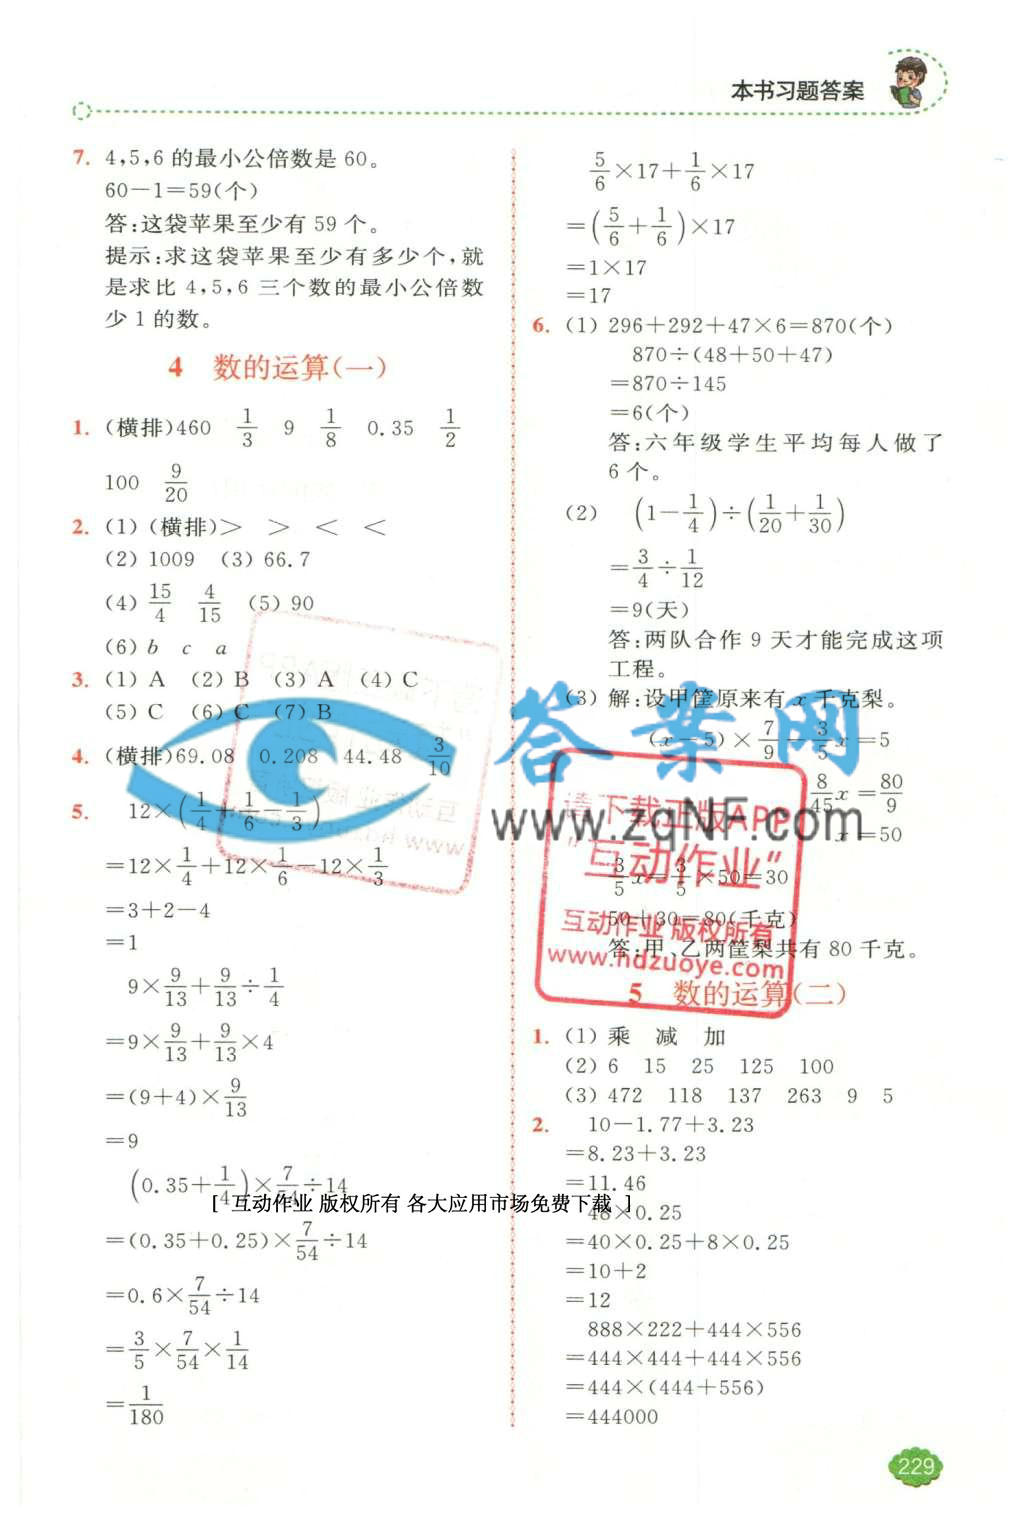 本书习题答案
7. 4,5,6 的最小公倍数是 60。
60－1＝59(个)
答:这袋苹果至少有 59 个。
提示:求这袋苹果至少有多少个,就
是求比 4,5,6 三个数的最小公倍数
少 1 的数。
4 数的运算(一)
1. (横排)460 1/3 9 1/8 0.35 1/2
100 9/20
2. (1) (横排)＞ ＞ ＜ ＜
(2) 1009 (3) 66.7
(4) 15/4 4/15 (5) 90
(6) b c a
3. (1) A (2) B (3) A (4) C
(5) C (6) C (7) B
4. (横排)69.08 0.208 44.48 3/10
5. 12×(1/4＋1/6－1/3)
＝12×1/4＋12×1/6－12×1/3
＝3＋2－4
＝1
9×9/13＋9/13÷1/4
＝9×9/13＋9/13×4
＝(9＋4)×9/13
＝9
(0.35＋1/4)×7/54÷14
＝(0.35＋0.25)×7/54÷14
＝0.6×7/54÷14
＝3/5×7/54×1/14
＝1/180
5/6×17＋1/6×17
＝(5/6＋1/6)×17
＝1×17
＝17
6. (1) 296＋292＋47×6＝870(个)
870÷(48＋50＋47)
＝870÷145
＝6(个)
答:六年级学生平均每人做了
6 个。
(2) (1－1/4)÷(1/20＋1/30)
＝3/4÷1/12
＝9(天)
答:两队合作 9 天才能完成这项
工程。
(3) 解:设甲筐原来有 x 千克梨。
(x－5)×7/9－3/5x＝5
8/45x＝80/9
x＝50
3/5x＝3/5×50＝30
50＋30＝80(千克)
答:甲、乙两筐梨共有 80 千克。
5 数的运算(二)
1. (1) 乘 减 加
(2) 6 15 25 125 100
(3) 472 118 137 263 9 5
2. 10－1.77＋3.23
＝8.23＋3.23
＝11.46
48×0.25
＝40×0.25＋8×0.25
＝10＋2
＝12
888×222＋444×556
＝444×444＋444×556
＝444×(444＋556)
＝444000
229
答案网
www.zqNF.com
请下载正版APP
"互动作业"
互动作业 版权所有
www.hdzuoye.com
[ 互动作业 版权所有 各大应用市场免费下载 ]